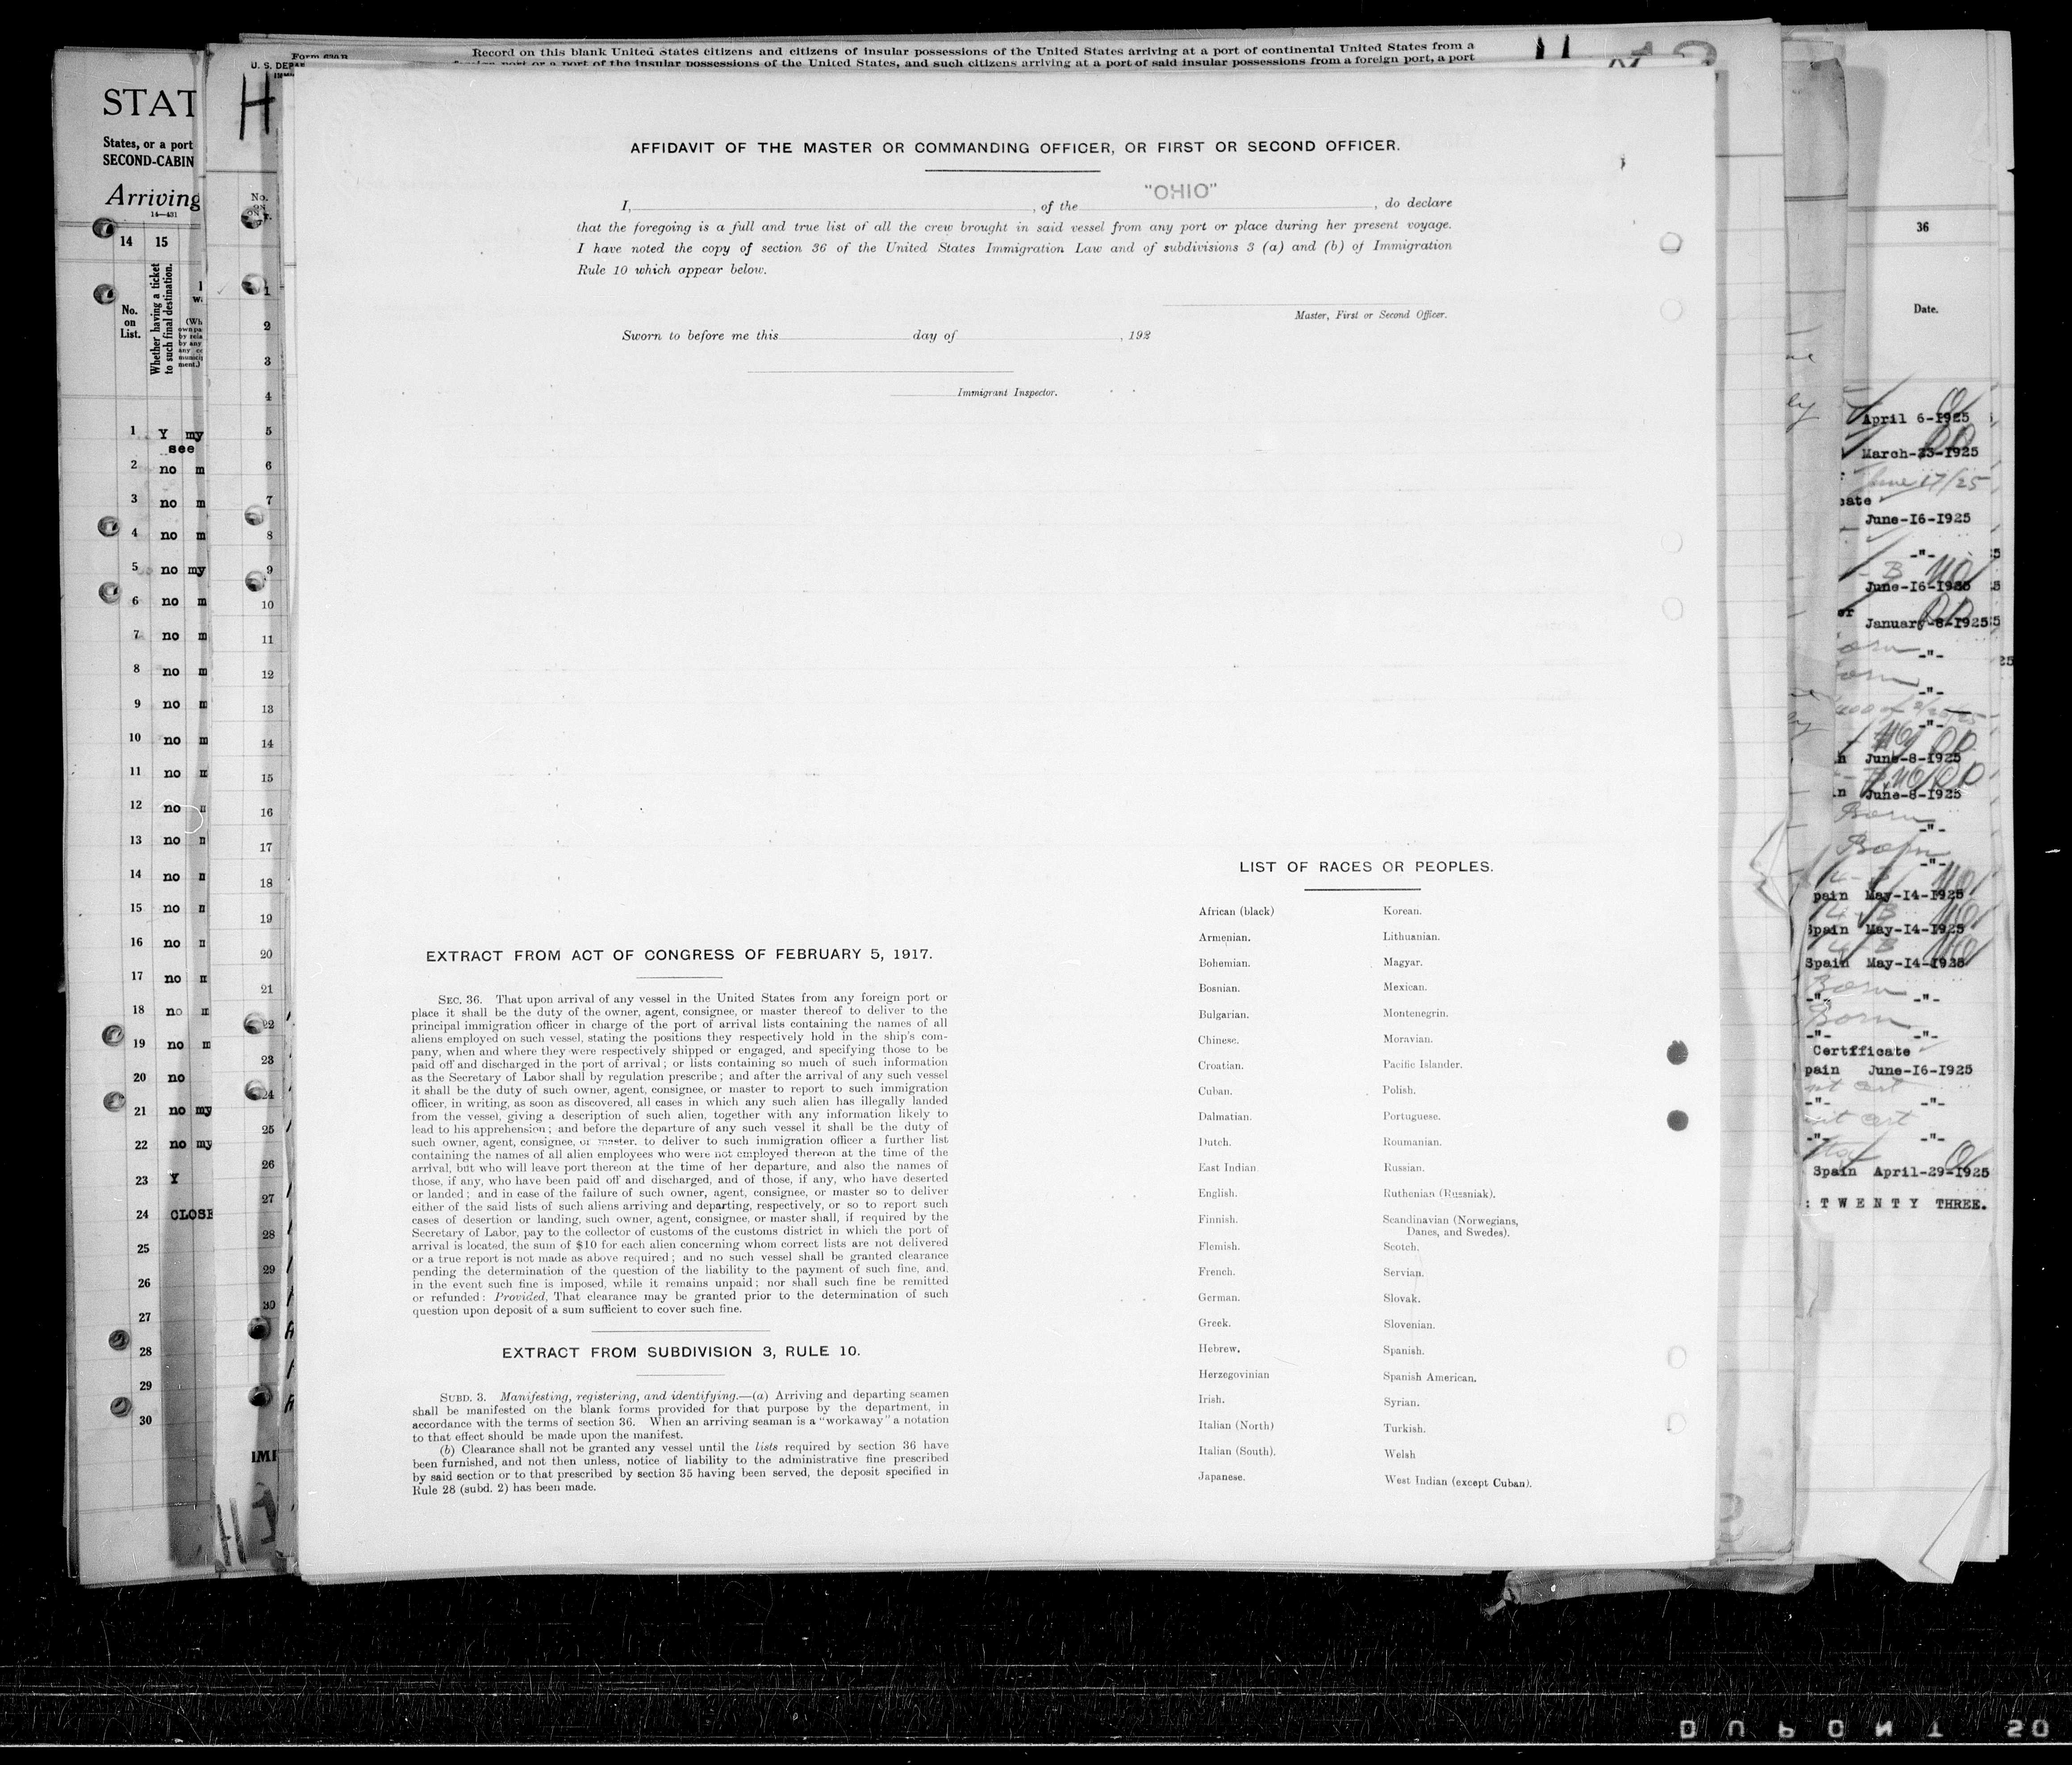 Record on this blank United States citizens and citizens of insular possessions of the United States arriving at a port of continental United States from a
foreign port or a port of the insular possessions of the United States, and such citizens arriving at a port of said insular possessions from a foreign port, a port
U. S. DEPA
STAT
States, or a port
SECOND-CABIN
Arriving
14—431
14 15
No.
on
List.
Whether having a ticket
to such final destination.
1 Y my
see
2 no m
3 no m
4 no m
5 no my
6 no m
7 no m
8 no m
9 no m
10 no m
11 no
12 no
13 no
14 no
15 no
16 no
17 no
18 no
19 no m
20 no
21 no my
22 no my
23 Y
24 CLOSE
25
26
27
28
29
30
H
No.
1
2
3
4
5
6
7
8
9
10
11
12
13
14
15
16
17
18
19
20
21
22
23
24
25
26
27
28
29
30
IMI
AFFIDAVIT OF THE MASTER OR COMMANDING OFFICER, OR FIRST OR SECOND OFFICER.
"OHIO"
I, , of the , do declare
that the foregoing is a full and true list of all the crew brought in said vessel from any port or place during her present voyage.
I have noted the copy of section 36 of the United States Immigration Law and of subdivisions 3 (a) and (b) of Immigration
Rule 10 which appear below.
Master, First or Second Officer.
Sworn to before me this day of , 192
Immigrant Inspector.
EXTRACT FROM ACT OF CONGRESS OF FEBRUARY 5, 1917.
SEC. 36. That upon arrival of any vessel in the United States from any foreign port or
place it shall be the duty of the owner, agent, consignee, or master thereof to deliver to the
principal immigration officer in charge of the port of arrival lists containing the names of all
aliens employed on such vessel, stating the positions they respectively hold in the ship's com-
pany, when and where they were respectively shipped or engaged, and specifying those to be
paid off and discharged in the port of arrival; or lists containing so much of such information
as the Secretary of Labor shall by regulation prescribe; and after the arrival of any such vessel
it shall be the duty of such owner, agent, consignee, or master to report to such immigration
officer, in writing, as soon as discovered, all cases in which any such alien has illegally landed
from the vessel, giving a description of such alien, together with any information likely to
lead to his apprehension; and before the departure of any such vessel it shall be the duty of
such owner, agent, consignee, or master. to deliver to such immigration officer a further list
containing the names of all alien employees who were not employed thereon at the time of the
arrival, but who will leave port thereon at the time of her departure, and also the names of
those, if any, who have been paid off and discharged, and of those, if any, who have deserted
or landed; and in case of the failure of such owner, agent, consignee, or master so to deliver
either of the said lists of such aliens arriving and departing, respectively, or so to report such
cases of desertion or landing, such owner, agent, consignee, or master shall, if required by the
Secretary of Labor, pay to the collector of customs of the customs district in which the port of
arrival is located, the sum of $10 for each alien concerning whom correct lists are not delivered
or a true report is not made as above required; and no such vessel shall be granted clearance
pending the determination of the question of the liability to the payment of such fine, and,
in the event such fine is imposed, while it remains unpaid; nor shall such fine be remitted
or refunded: Provided, That clearance may be granted prior to the determination of such
question upon deposit of a sum sufficient to cover such fine.
EXTRACT FROM SUBDIVISION 3, RULE 10.
SUBD. 3. Manifesting, registering, and identifying.—(a) Arriving and departing seamen
shall be manifested on the blank forms provided for that purpose by the department, in
accordance with the terms of section 36. When an arriving seaman is a "workaway" a notation
to that effect should be made upon the manifest.
(b) Clearance shall not be granted any vessel until the lists required by section 36 have
been furnished, and not then unless, notice of liability to the administrative fine prescribed
by said section or to that prescribed by section 35 having been served, the deposit specified in
Rule 28 (subd. 2) has been made.
LIST OF RACES OR PEOPLES.
African (black) Korean.
Armenian. Lithuanian.
Bohemian. Magyar.
Bosnian. Mexican.
Bulgarian. Montenegrin.
Chinese. Moravian.
Croatian. Pacific Islander.
Cuban. Polish.
Dalmatian. Portuguese.
Dutch. Roumanian.
East Indian Russian.
English. Ruthenian (Russniak).
Finnish. Scandinavian (Norwegians,
Danes, and Swedes).
Flemish. Scotch.
French. Servian.
German. Slovak.
Greek. Slovenian.
Hebrew. Spanish.
Herzegovinian Spanish American.
Irish. Syrian.
Italian (North) Turkish.
Italian (South). Welsh
Japanese. West Indian (except Cuban).
36
Date.
April 6-1925
March-23-1925
June 17/25
June-16-1925
-"-
June-16-1925
January-8-1925
-"-
-"-
-"-
June-8-1925
June-8-1925
Born
-"-
Born
-"-
pain May-14-1925
Spain May-14-1925
Spain May-14-1925
Born
-"- -"-
Born
-"- -"-
Certificate
pain June-16-1925
-"- -"-
-"- -"-
Spain April-29-1925
: T W E N T Y THREE.
DUPONT 50